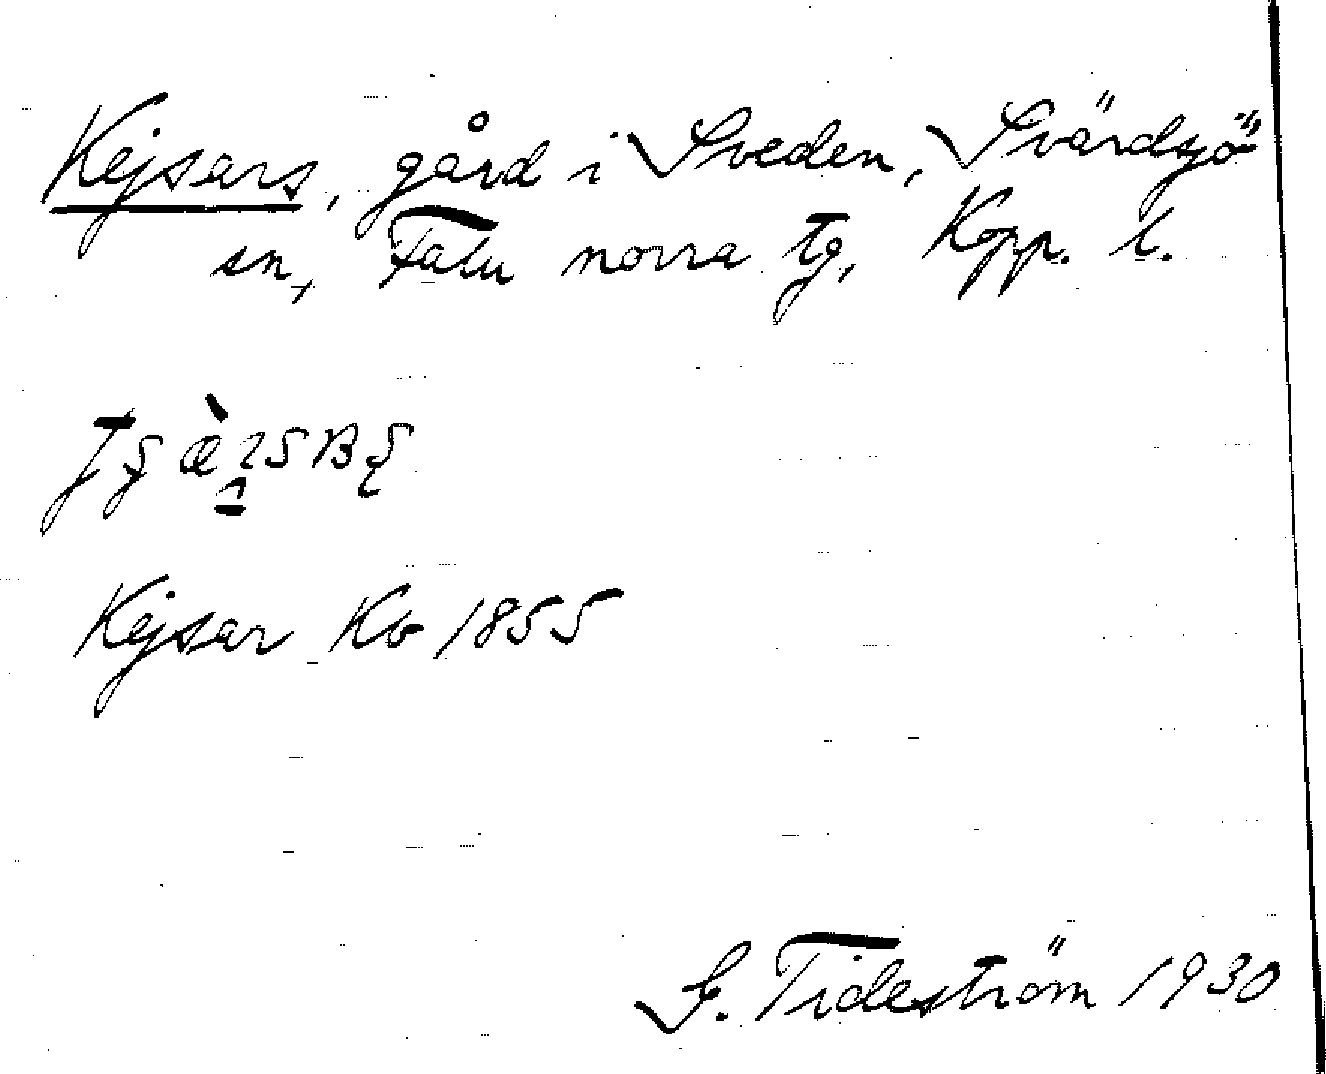 Kejsars, gård i Sveden, Svärdsjö
sn, Falu norra tg, Kopp. l.
Kejsar Kb 1855
G. Tideström 1930